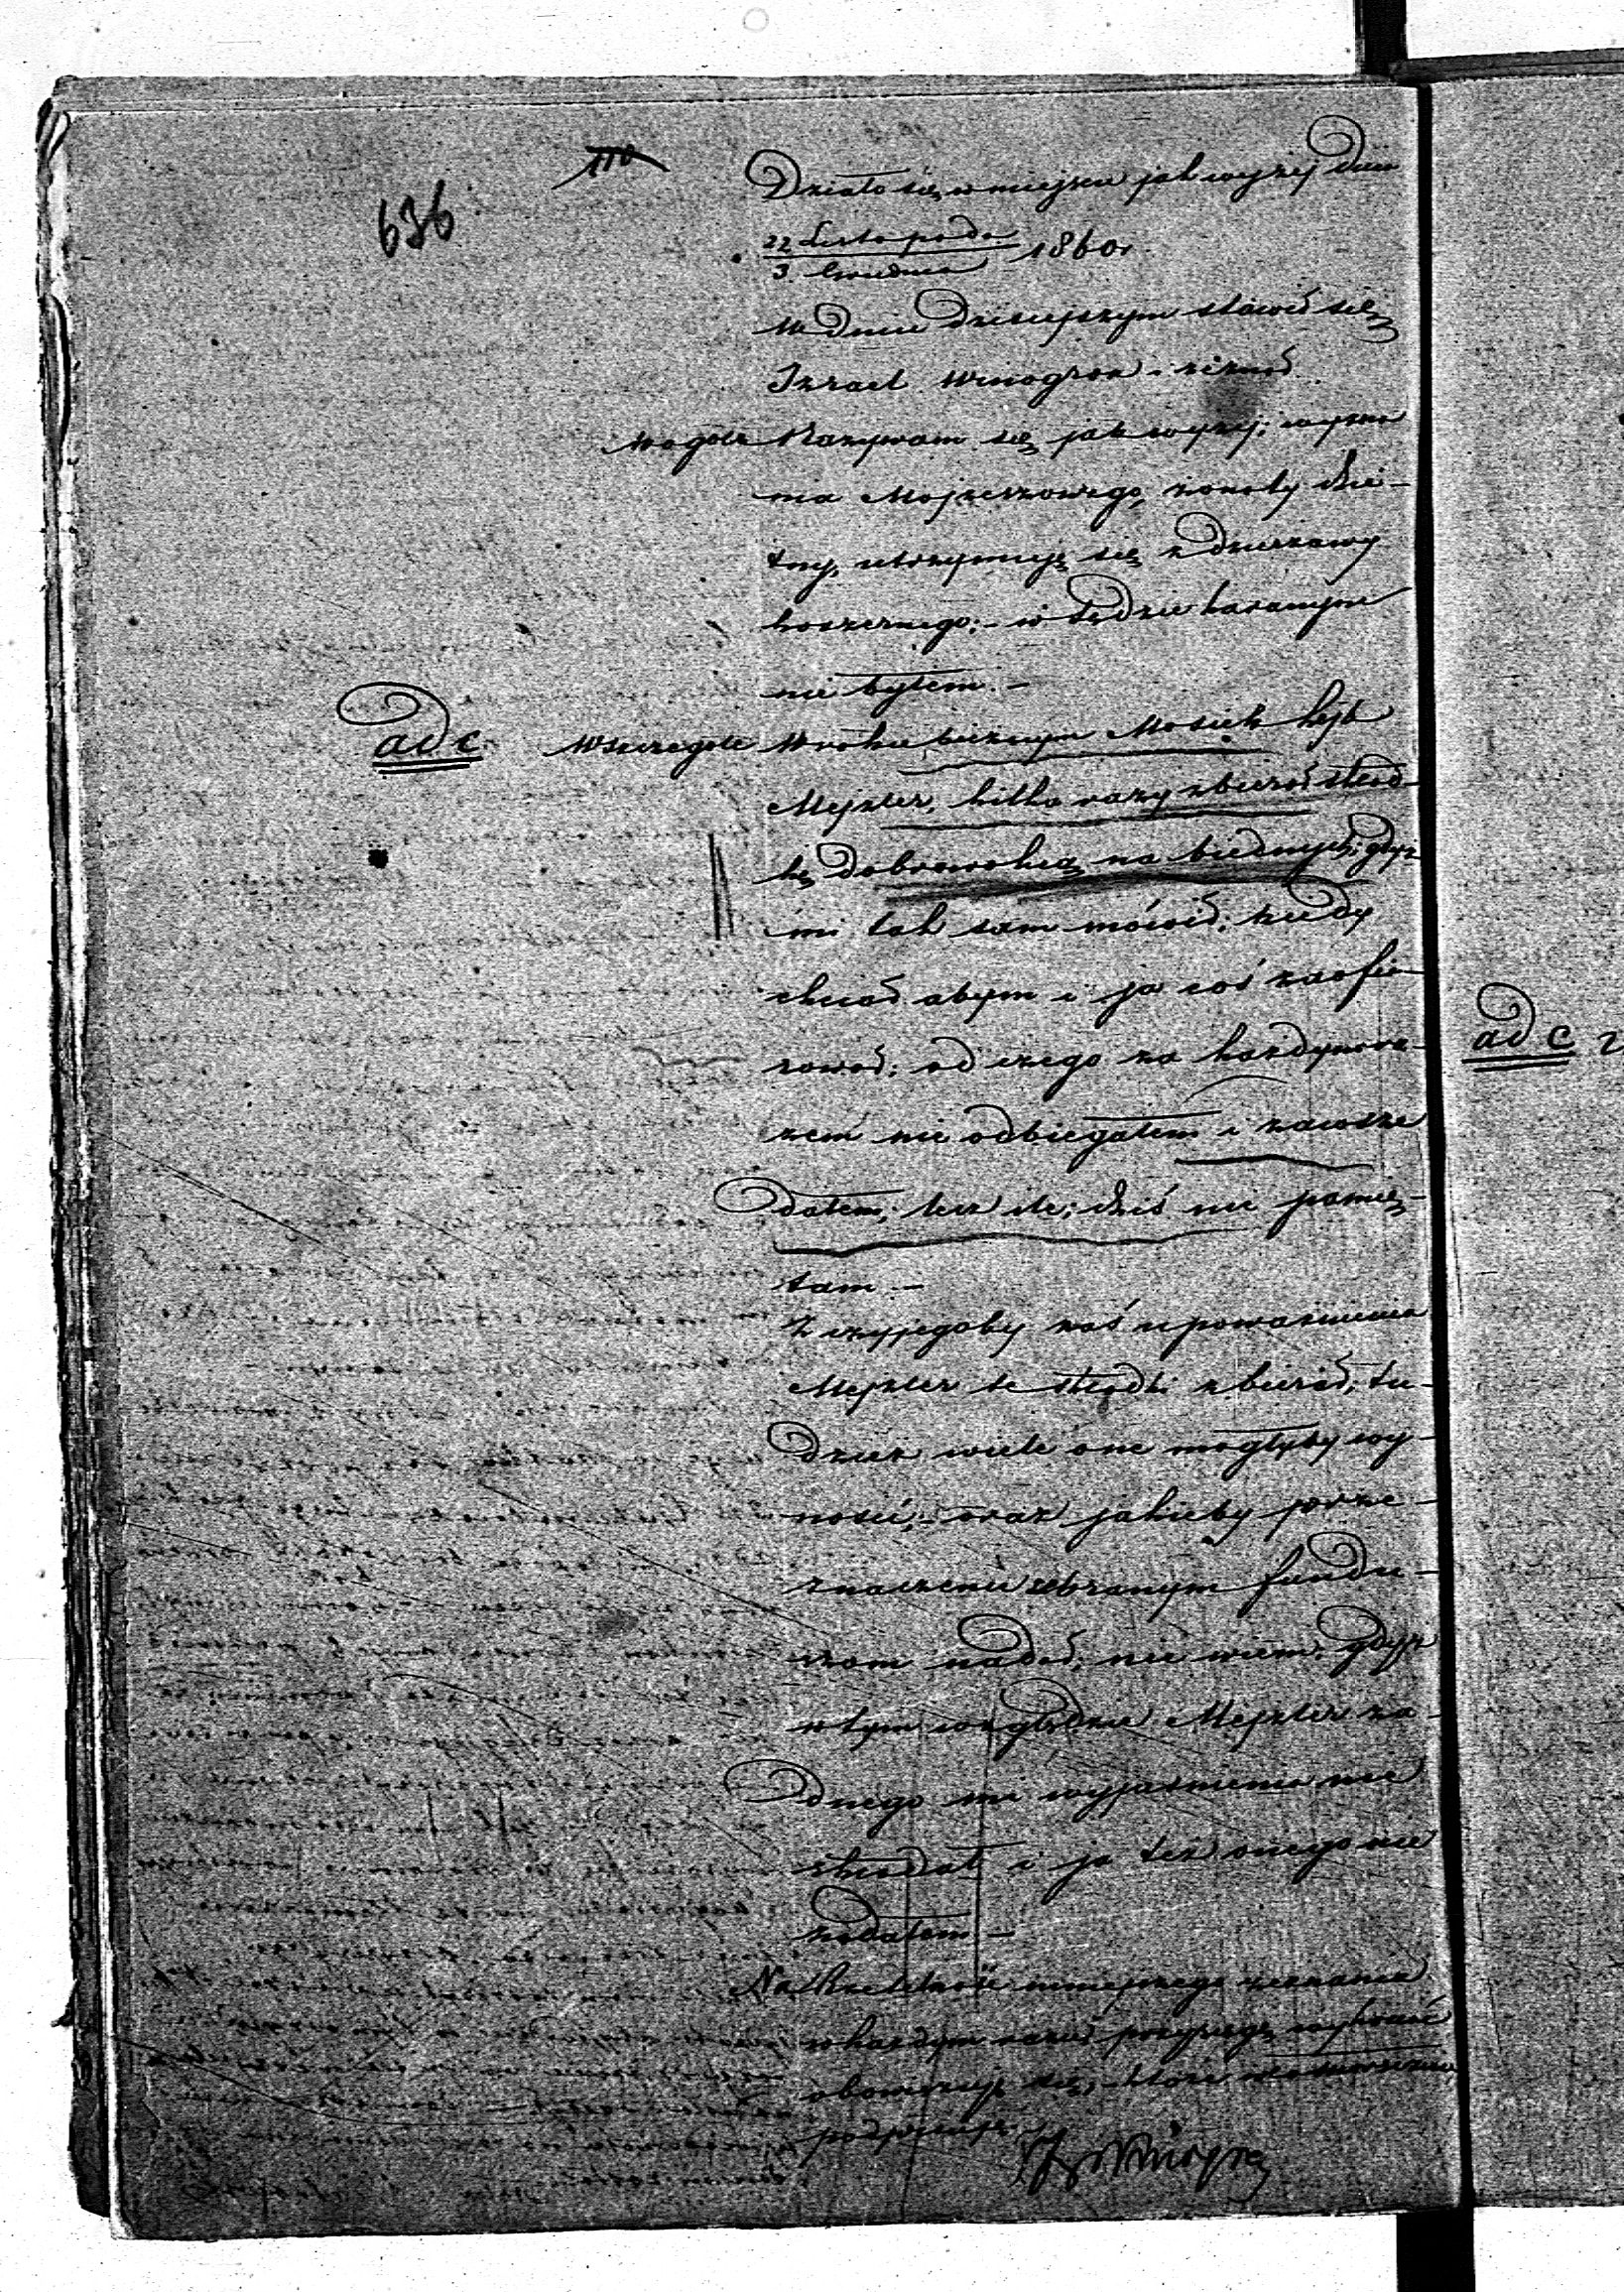 110
636
Działo się w miejscu jak wyżej dnia
22 Listopada
3 Grudnia 1860 r
W dniu dzisiejszym stawił się
Izrael Winogron i zeznał
Wogóle Nazywam się jak wyżej; wyzna
nia Mojżeszowego, żonaty dzie-
tny, utrzymuję się z dzierżawy
koszernego; - w sądzie karanym
nie byłem. -
ad c. Wszczególe W roku bieżącym Mosiek Lejb
Mejzler, kilka razy zbierał skład-
kę dobrowolną na biednych; gdyż
mi tak sam mówił, kiedy
chciał abym i ja coś zaofia-
rował; od czego za każdym ra-
zem nie odbiegałem i zawsze
dałem; lecz ile; dziś nie pamię-
tam -
Z czyjegoby zaś upoważnienia
Mejzler te składki zbierał; tu-
dzież wiele one mogłyby wy-
nosić; - oraz jakieby prze-
znaczenie zebranym fundu-
szom nadał; nie wiem; gdyż
w tym względzie Mejzler ża-
dnego mi wyjaśnienia nie
składał i ja też onego nie
żądałem -
Na rzetelność niniejszego zeznania
w każdym razie przysięgę wykonać
obowiązuję się; -
podpisuję
ad c